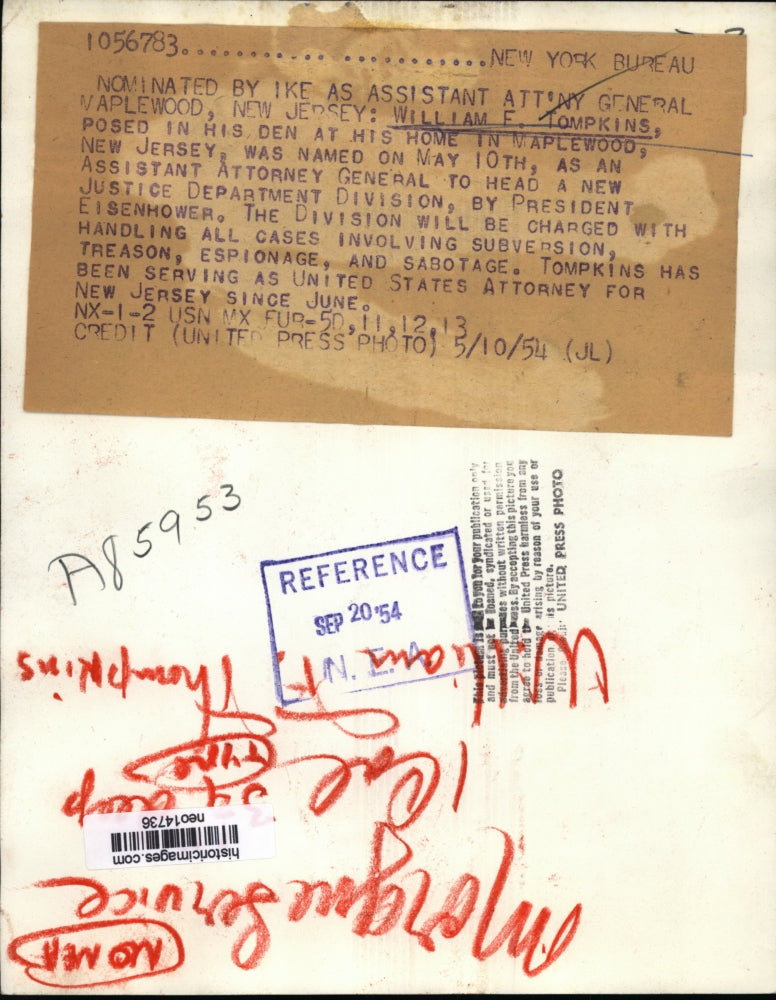 1056783.........................NEW YORK BUREAU
NOMINATED BY IKE AS ASSISTANT ATT'NY GENERAL
MAPLEWOOD, NEW JERSEY: WILLIAM F. TOMPKINS,
POSED IN HIS DEN AT HIS HOME IN MAPLEWOOD,
NEW JERSEY, WAS NAMED ON MAY 10TH, AS AN
ASSISTANT ATTORNEY GENERAL TO HEAD A NEW
JUSTICE DEPARTMENT DIVISION, BY PRESIDENT
EISENHOWER. THE DIVISION WILL BE CHARGED WITH
HANDLING ALL CASES INVOLVING SUBVERSION,
TREASON, ESPIONAGE, AND SABOTAGE. TOMPKINS HAS
BEEN SERVING AS UNITED STATES ATTORNEY FOR
NEW JERSEY SINCE JUNE.
NX-1-2 USN MX EUR-50,11,12,13
CREDIT (UNITED PRESS PHOTO) 5/10/54 (JL)
A85953
REFERENCE
SEP 20 '54
N. E. A.
This picture is to you for your publication only
and must not be loaned, syndicated or used for
advertising purposes without written permission
from the United Press. By accepting this picture you
agree to hold the United Press harmless from any
loss or damage arising by reason of your use or
publication is picture.
Please UNITED PRESS PHOTO
NOMA
Morgue Service
1 Col
deep
TYPE
William F. Thompkins
historicimages.com
neo14736